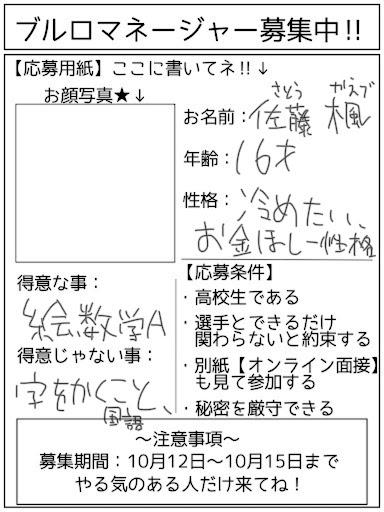 ブルロマネージャー募集中!!
【応募用紙】ここに書いてネ!!↓
お顔写真★↓
さとう かえで
お名前:佐藤 楓
年齢:16才
性格:冷めたい、
お金ほしー性格
得意な事:
絵、数学A
得意じゃない事:
字をかくこと、
国語
【応募条件】
・高校生である
・選手とできるだけ
関わらないと約束する
・別紙【オンライン面接】
も見て参加する
・秘密を厳守できる
〜注意事項〜
募集期間:10月12日〜10月15日まで
やる気のある人だけ来てね!